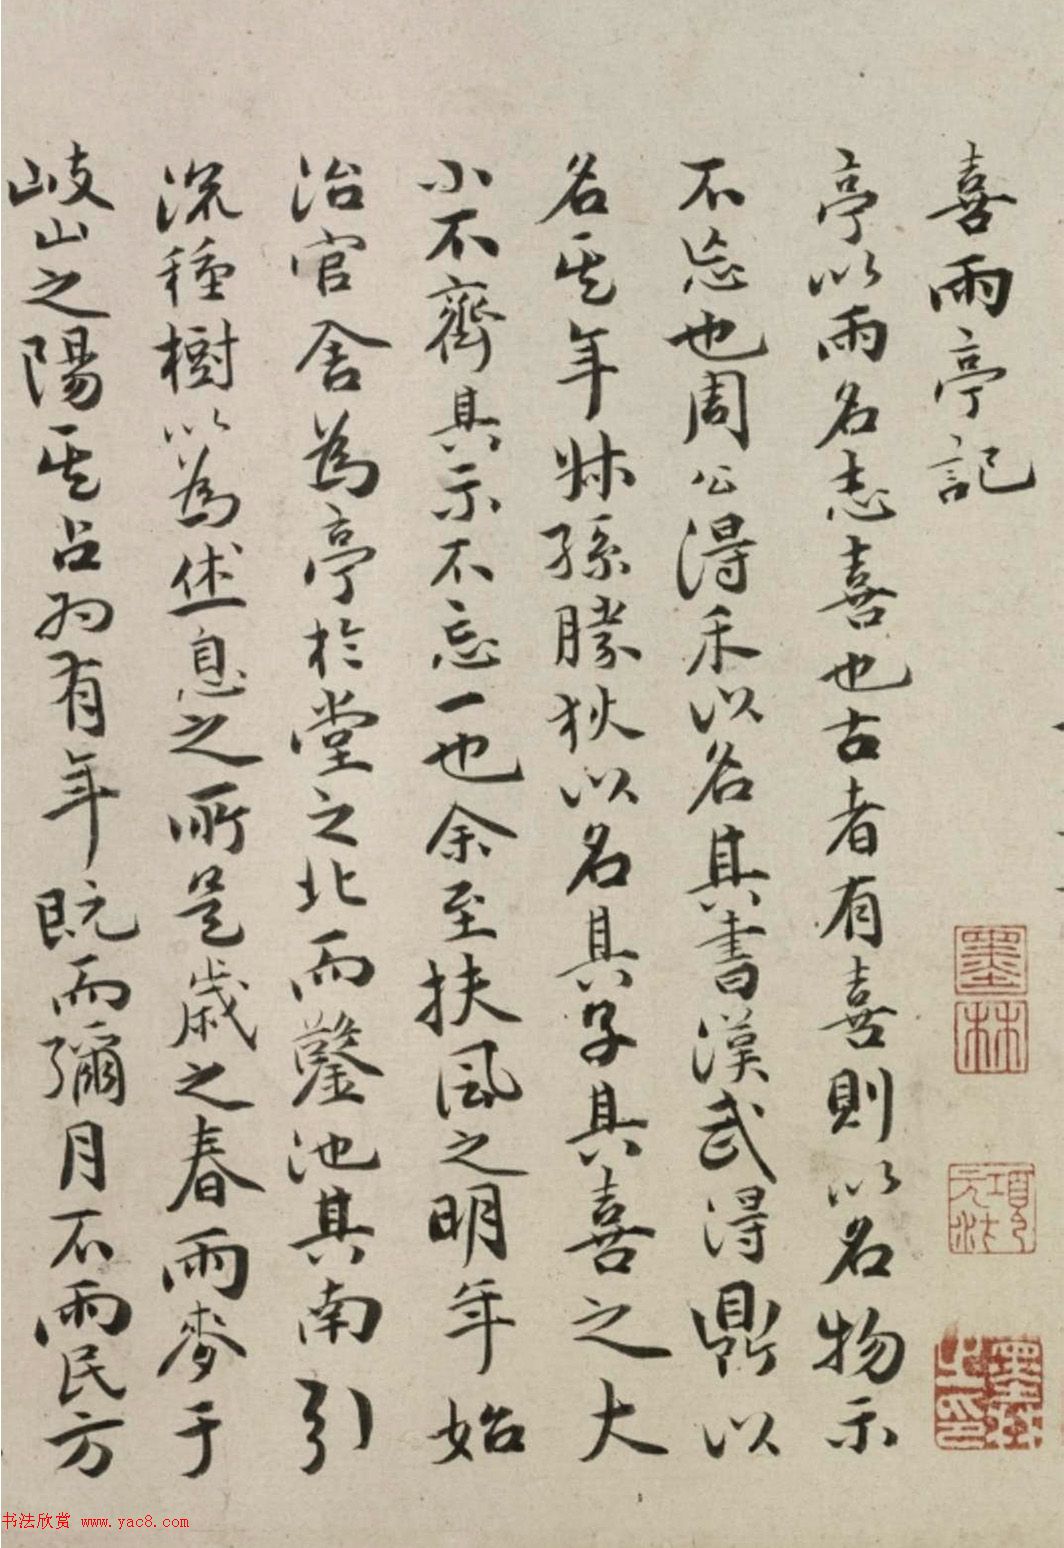 喜雨亭記
亭以雨名志喜也古者有喜則以名物示
不忘也周公得禾以名其書漢武得鼎以
名其年叔孫勝狄以名其子其喜之大
小不齊其示不忘一也余至扶風之明年始
治官舍為亭於堂之北而鑿池其南引
流種樹以為休息之所是歲之春雨麥于
岐山之陽其占為有年既而彌月不雨民方
墨林
項元汴印
墨林之印
书法欣赏 www.yac8.com